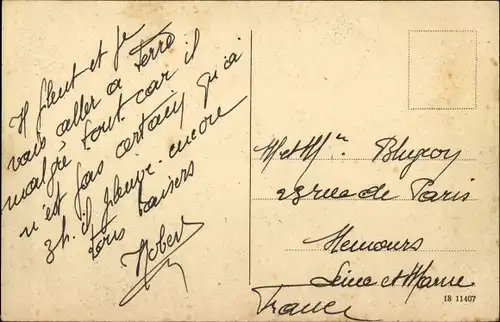 Il pleut et je
vais aller à terre
malgré tout car il
n'est pas certain qu'à
3h. il pleuve encore
bons baisers
Robert
M et Mme
23 rue de Paris
Nemours
Seine et Marne
France
18 11407